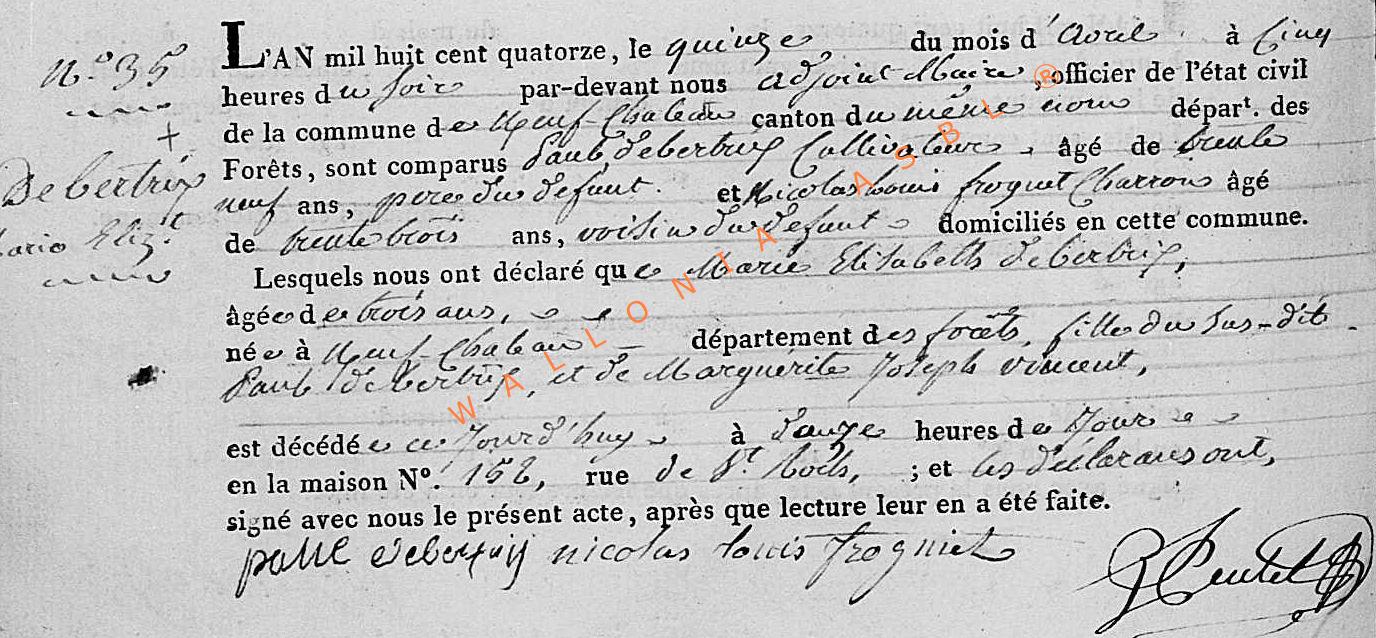 N.° 35
Debertrix
Marie Eliz.t
L'AN mil huit cent quatorze, le quinze du mois d'Avril à Cinq
heures du soir par-devant nous adjoint Maire, officier de l'état civil
de la commune de Neuf-Chateau canton du même nom départ. des
Forêts, sont comparus Paul Debertrix Cultivateur, âgé de trente
neuf ans, pere du defunt. et Nicolas Louis froguet Charron âgé
de trente trois ans, voisin du defunt domiciliés en cette commune.
Lesquels nous ont déclaré que Marie Elisabeth debertrix,
âgée de trois ans,
née à Neuf-Chateau département des forêts, fille du sus-dit
Paul debertrix, et de Marguérite Joseph vincent,
est décédée ce jourd'huy à douze heures de jour
en la maison N.° 152, rue de St. Roch, ; et les déclarans ont,
signé avec nous le présent acte, après que lecture leur en a été faite.
paull debertrix nicolas louis frogniet
WALLONIA ASBL ®